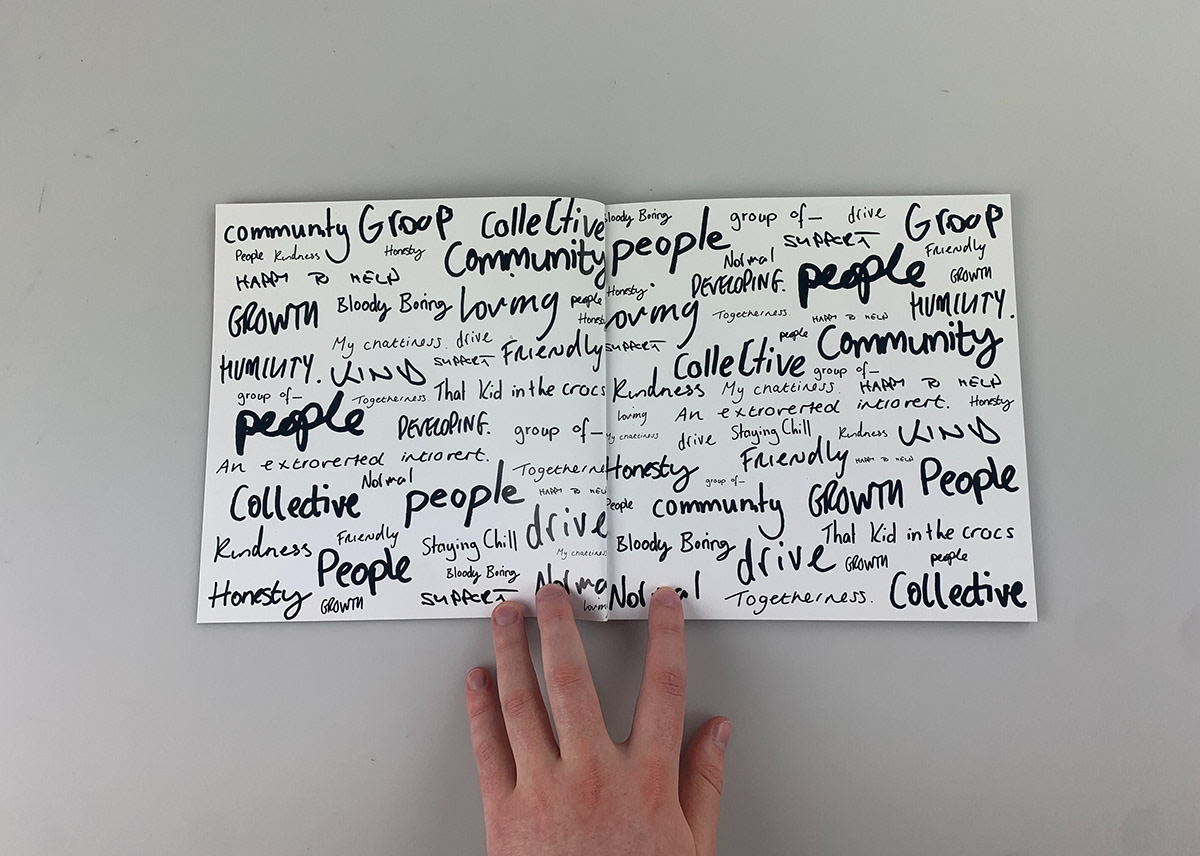 community Group Collective
People Kindness Honesty Community
HAPPY TO HELP
GROWTH Bloody Boring loving people
Honest
My chattiness. drive
HUMILITY. KIND SUPPORT FRIENDLY
group of— Togetherness. That Kid in the crocs
people DEVELOPING. group of—
An extroverted introvert.
Normal Togetherne
Collective people HAPPY TO HELP
drive
Kindness Friendly Staying Chill My chattiness
People Bloody Boring Norma
Honesty GROWTH SUPPORT lovin
Bloody Boring group of— drive Group
people SUPPORT Friendly
Normal
Honesty. DEVELOPING. people GROWTH
oving Togetherness. HAPPY TO HELP HUMILITY.
people Community
SUPPORT Collective group of—
Kindness My chattiness. HAPPY TO HELP
loving An extroverted introvert. Honesty
My chattiness. drive Staying Chill Kindness KIND
Honesty FRIENDLY HAPPY TO HELP
group of— People
People community GROWTH
That Kid in the crocs
Bloody Boring drive GROWTH people
Nor al Togetherness. Collective